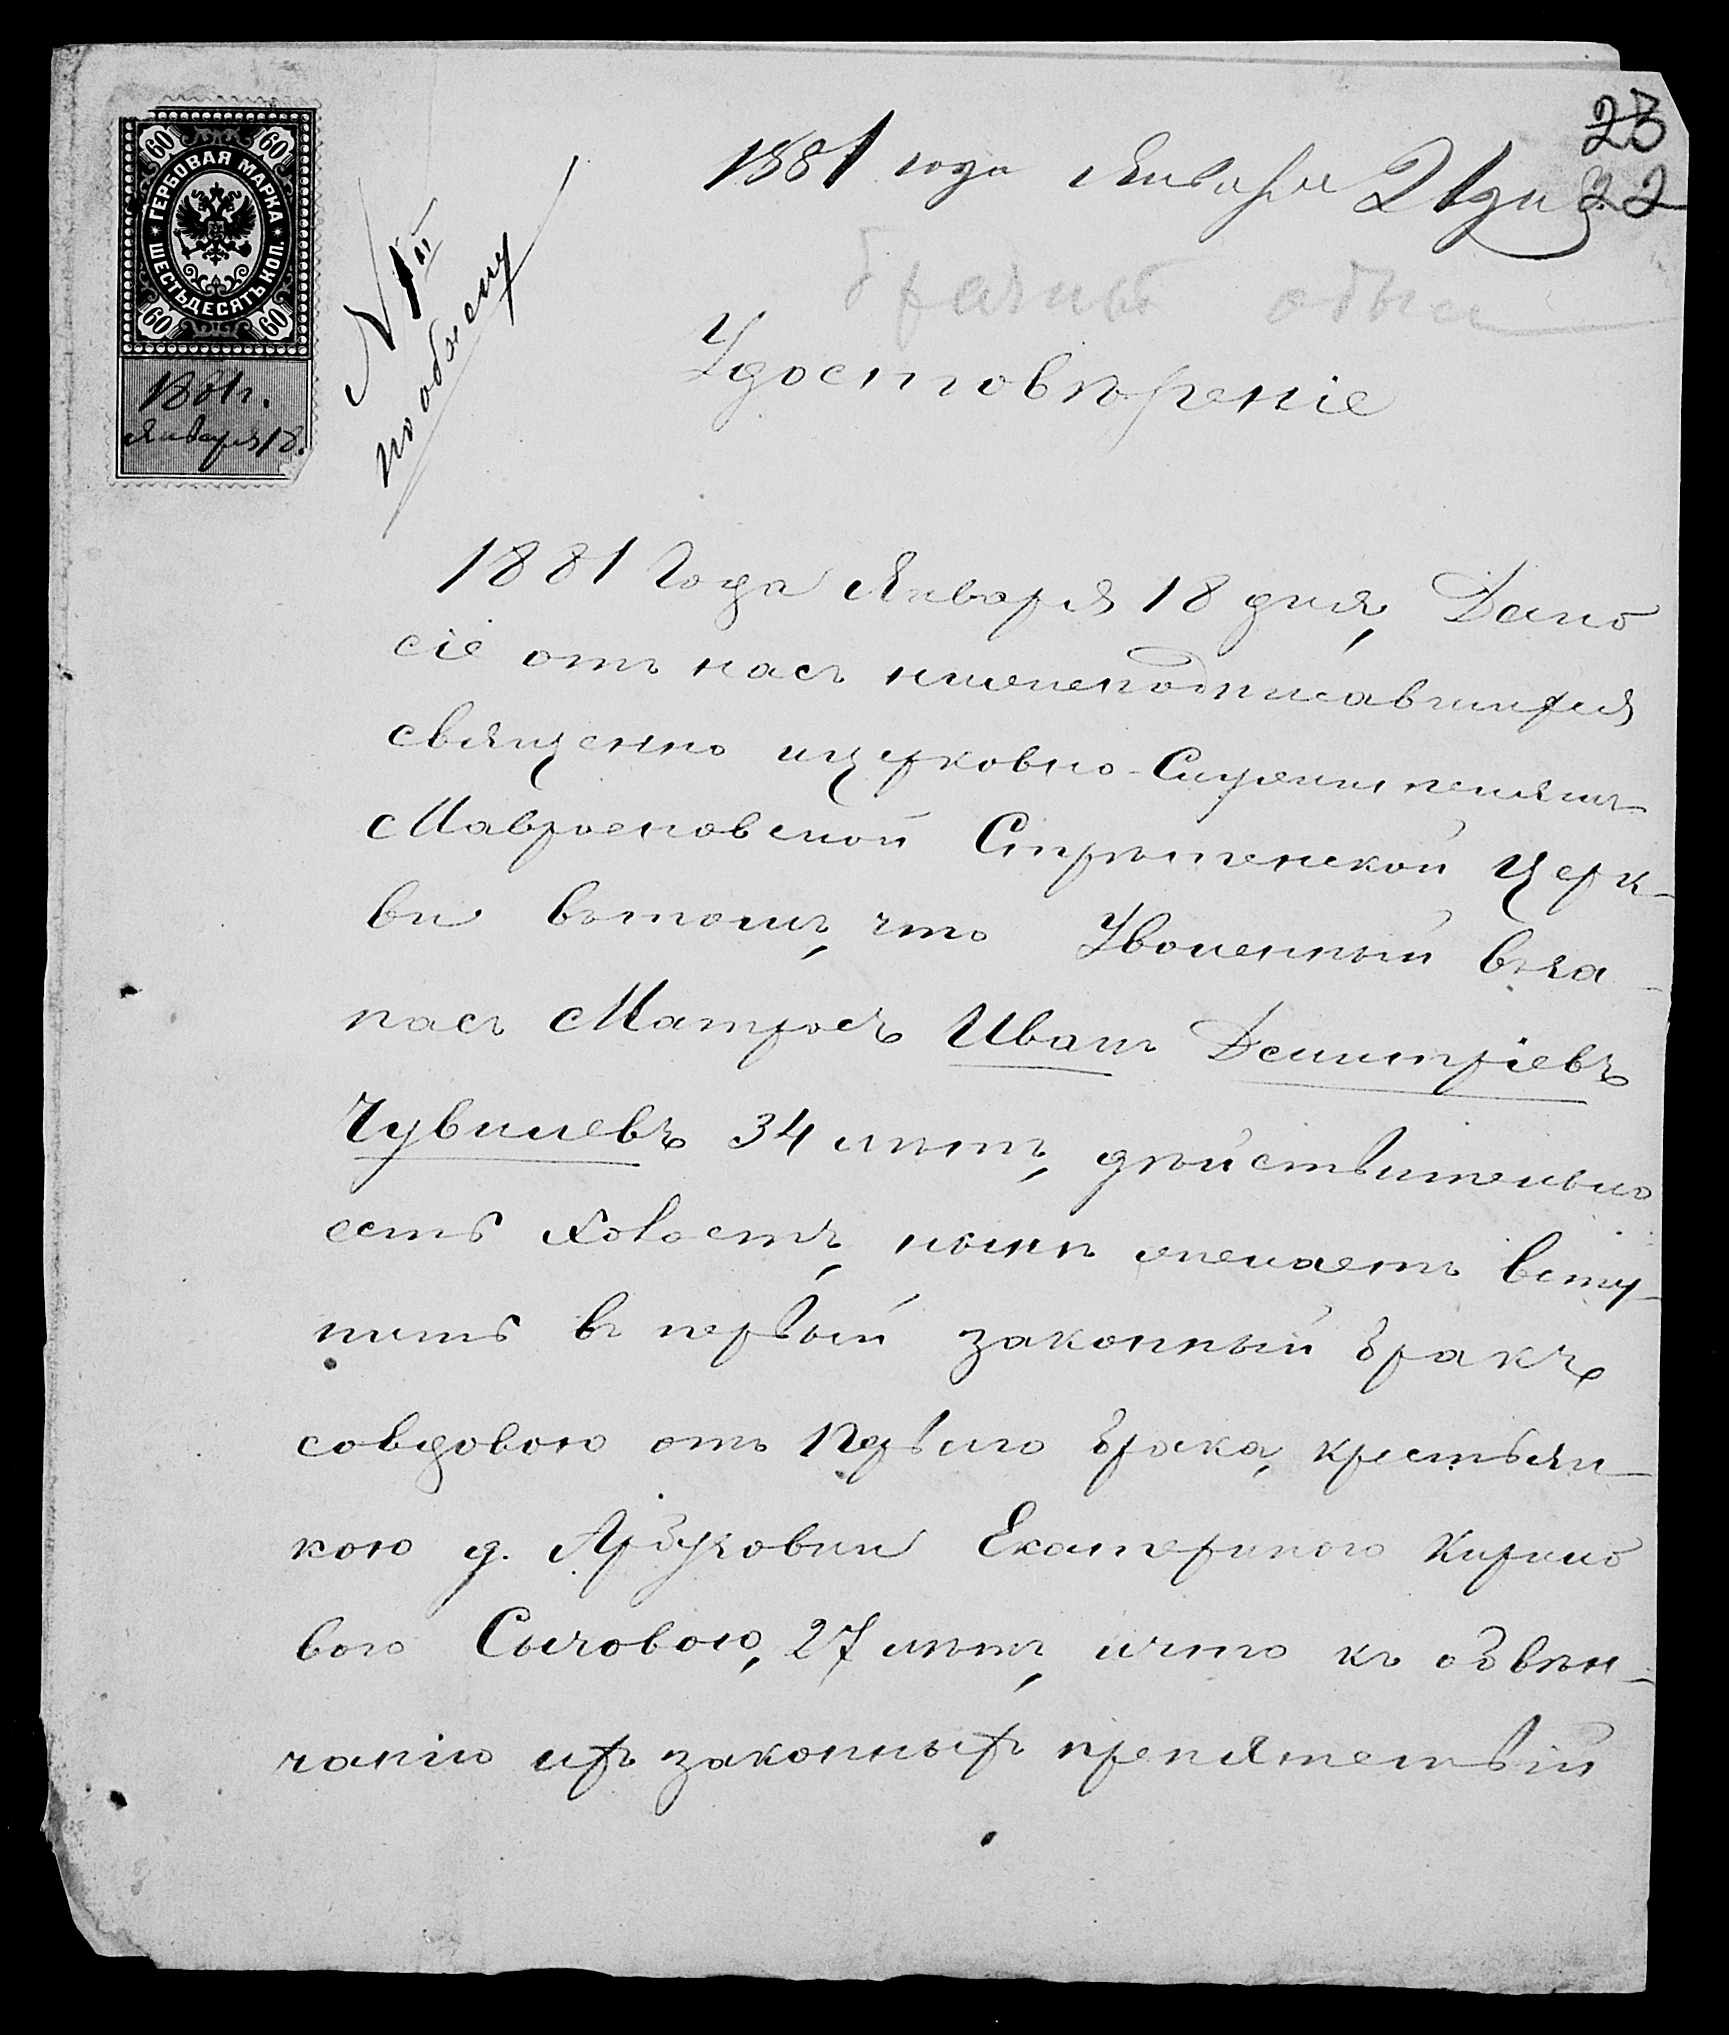 23
22
1881 года Января 21 дня
ГЕРБОВАЯ МАРКА
ШЕСТЬДЕСЯТЪ КОП.
60 60
60 60
1881 г.
Января 18.
N 1й
по обыску
брачный обыск
Удостовѣреніе
1881 Года Января 18 дня, Дано
сіе отъ насъ нижеподписавшихся
священно и церковно-Служителямъ
Маврженовской Стрѣтенской Церк-
ви вътомъ, что Уволенный въза-
пасъ Матросъ Иванъ Демитріевъ
Чувилевъ 34 лѣтъ, дѣйствительно
есть Холостъ, нынѣ желаетъ всту-
пить въ первый законный бракъ
совдовою отъ Перваго брака, крестьян-
кою д. Ярзуковки Екатериною Кирило
вою Сычовою, 27 лѣтъ, ичто къ обвѣн-
чанію ихъ законныхъ препятствій